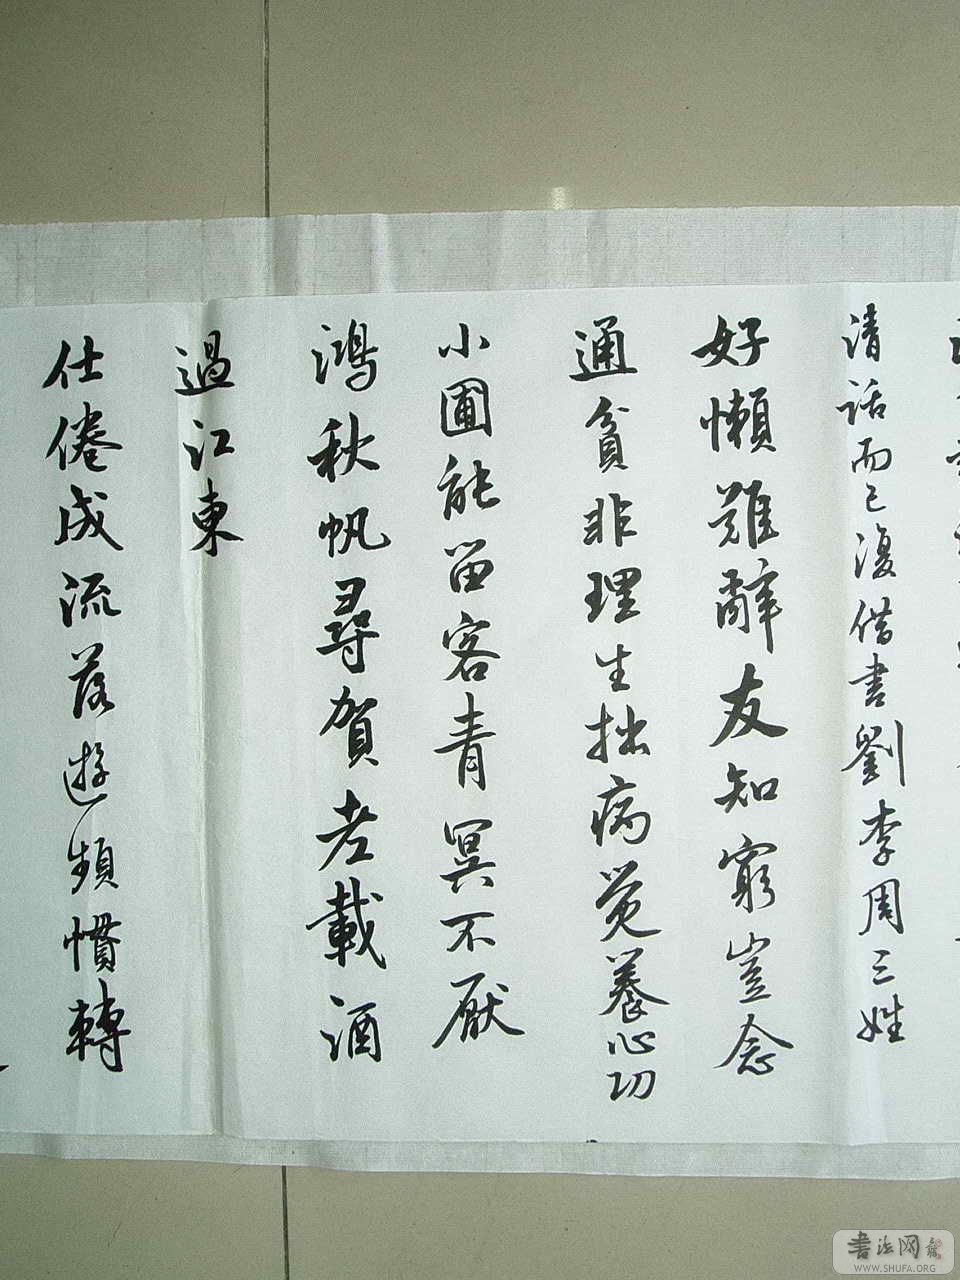 清話而已復借書劉李周三姓
好懶難辭友知窮豈念
通貧非理生拙病覺養心功
小圃能留客青冥不厭
鴻秋帆尋賀老載酒
過江東
仕倦成流落遊頻慣轉
書法网
WWW.SHUFA.ORG